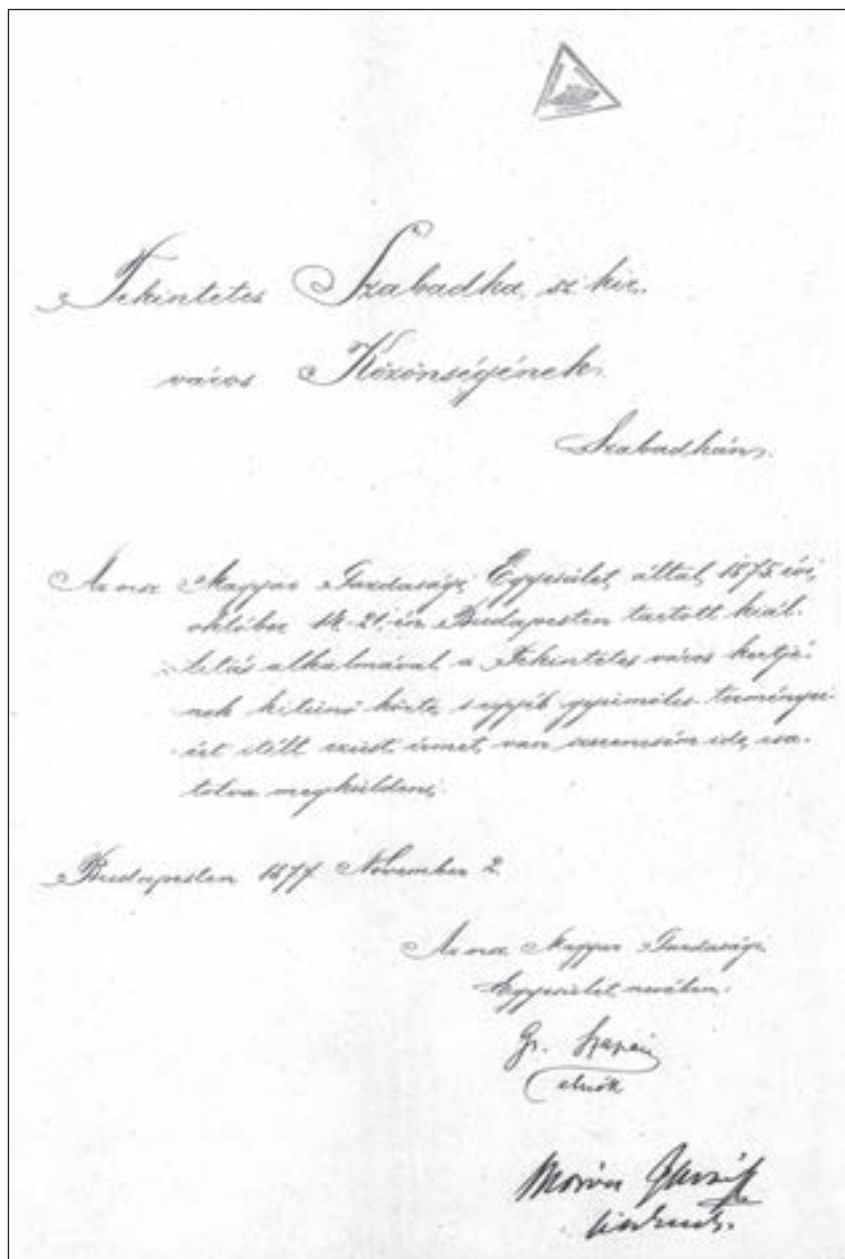 Tekintetes Szabadka sz. kir.
város Közönségének.
Szabadkán.
Az orsz. Magyar Gazdasági Egyesület által, 1875 évi
október 14-21. én Budapesten tartott kiál-
litás alkalmával a Tekintetes város kertjé-
nek kitünő körte, s egyéb gyümölcs terményei-
ért itélt ezüst érmet, van szerencsém ide, csa-
tolva megküldeni.
Budapesten 1877 November 2
Az orsz. Magyar Gazdasági
Egyesület nevében.
Gr.
elnök